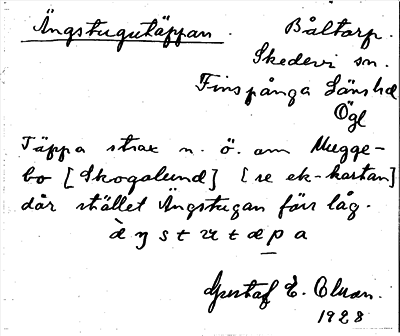 Ängstugutäppan.
Båltorp.
Skedevi sn.
Finspånga Länshd
Ögl
Täppa strax n. ö. om Mugge-
bo [Skogalund] [se ek-kartan]
där stället Ängstugan förr låg.
Gustaf E. Olsson.
1928